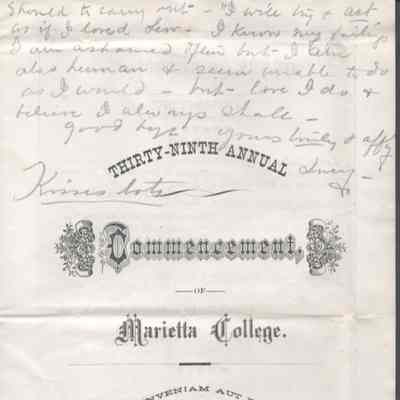 should to carry out - "I will try & act
as if I loved Him - I know my failings
I am ashamed often but I am
also human & seem unable to do
as I would - but love I do &
believe I always shall -
good bye yours truly & affly
Lucy -
Kisses lots
THIRTY-NINTH ANNUAL
Commencement,
OF
Marietta College.
VENIAM AUT